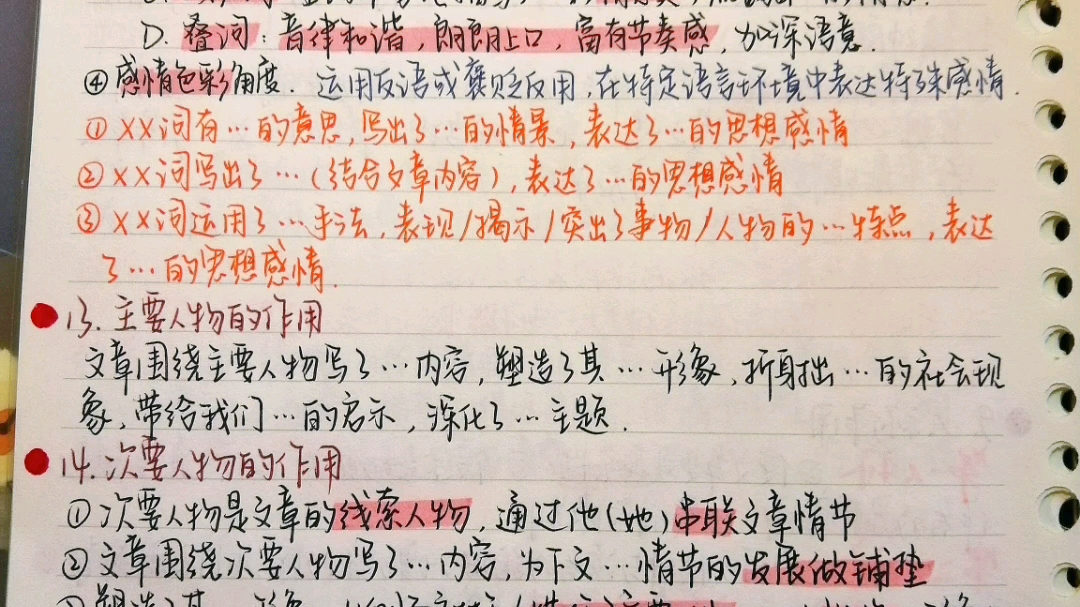 D. 叠词：音律和谐，朗朗上口，富有节奏感，加深语意.
④感情色彩角度. 运用反语或褒贬反用，在特定语言环境中表达特殊感情.
①XX词有…的意思，写出了…的情景，表达了…的思想感情
②XX词写出了…(结合文章内容)，表达了…的思想感情
③XX词运用了…手法，表现/揭示/突出了事物/人物的…特点，表达
了…的思想感情.
13. 主要人物的作用
文章围绕主要人物写了…内容，塑造了其…形象，折射出…的社会现
象，带给我们…的启示，深化了…主题.
14. 次要人物的作用
①次要人物是文章的线索人物，通过他(她)串联文章情节
②文章围绕次要人物写了…内容，为下文…情节的发展做铺垫